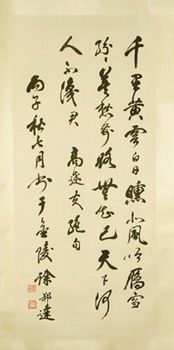 千里黄雲白日曛北風吹雁雪
紛紛莫愁前路無知己天下誰
人不識君 高適絕句
丙子秋七月書于金陵 徐邦達